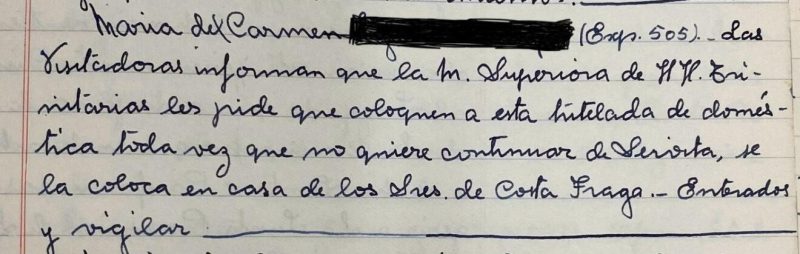 Maria del Carmen (Exp. 505). - Las
Visitadoras informan que la M. Superiora de HH. Tri-
nitarias les pide que coloquen a esta tutelada de domés-
tica toda vez que no quiere continuar de Señorita, se
la coloca en casa de los Sres. de Costa Fraga. - Enterados
y vigilar